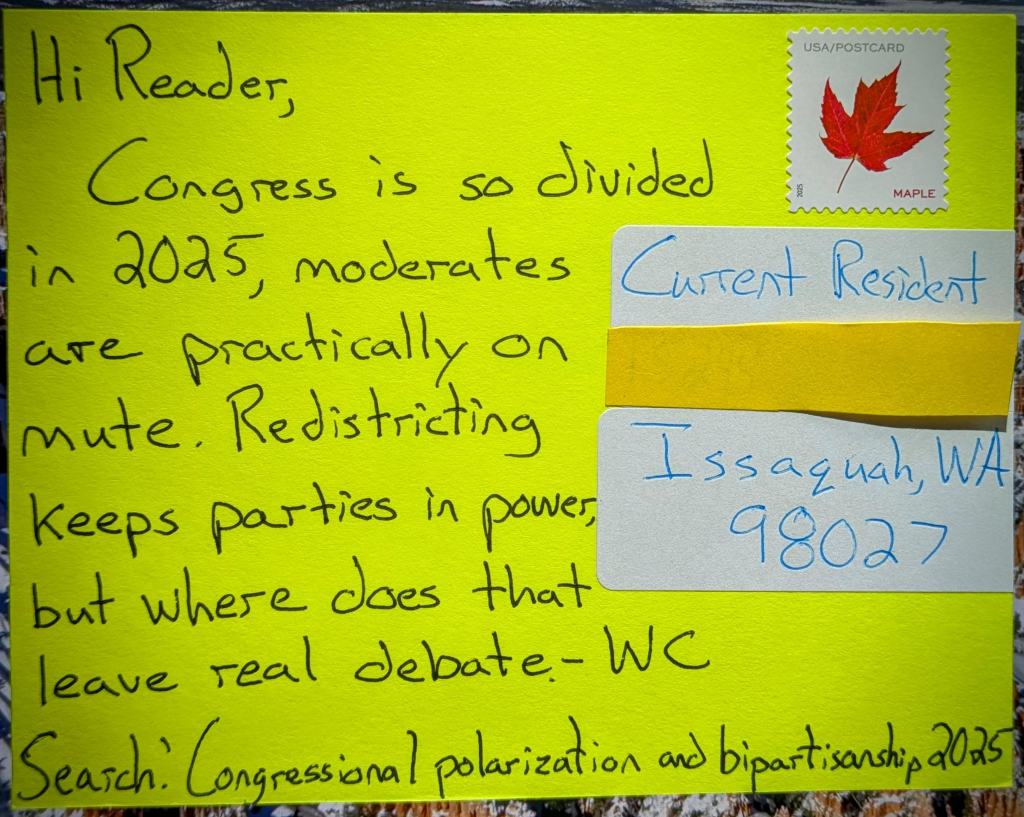 Hi Reader,
Congress is so divided
in 2025, moderates
are practically on
mute. Redistricting
keeps parties in power,
but where does that
leave real debate.- WC
Search: Congressional polarization and bipartisanship 2025
USA/POSTCARD
2025
MAPLE
Current Resident
Issaquah, WA
98027